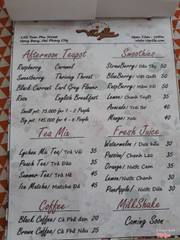 Afternoon Teapot
Raspberry Caramel
Sweetberry Thriving Throat
Black Currant Earl Grey Flower
Rose English Breakfast
Tea Mix
Lychee Mix Tea/ Trà Vải 35
Peach Tea/ Trà Đào 35
Summer Tea/ Trà 45
Ice Matcha/ Matcha Đá 45
Coffee
Black Coffee/ Cà Phê đen 20
Brown Coffee/ Cà Phê Nâu 25
Smoothies
Strawberry/ Dâu Tây 50
Blueberry/ Việt Quất 50
Raspberry/ Mâm Xôi 50
Lemon/ Chanh Tuyết 35
Avocado/ Trái Bơ 40
Mango/ Xoài 40
Fresh Juice
Watermelon/ Dưa hấu 30
Passion/ Chanh Leo 35
Orange/ Nước Cam 35
Lemon/ Nước Chanh 30
Pineapple/ Nước Dứa 30
MilkShake
Coming Soon